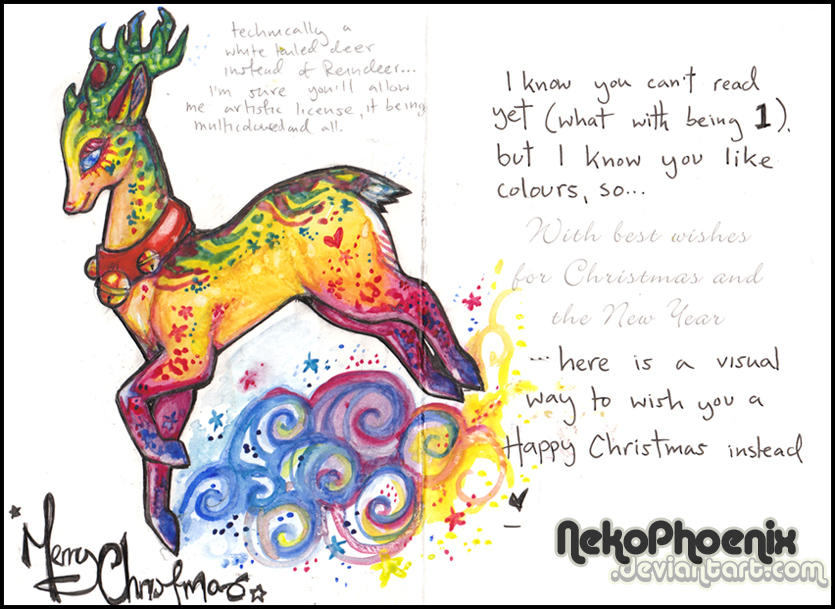 technically a
white tailed deer
instead of Reindeer...
I'm sure you'll allow
me artistic license, it being
multicoloured and all.
I know you can't read
yet (what with being 1),
but I know you like
colours, so...
With best wishes
for Christmas and
the New Year
...here is a visual
way to wish you a
Happy Christmas instead
Merry
Christmas
NekoPhoenix
.deviantart.com